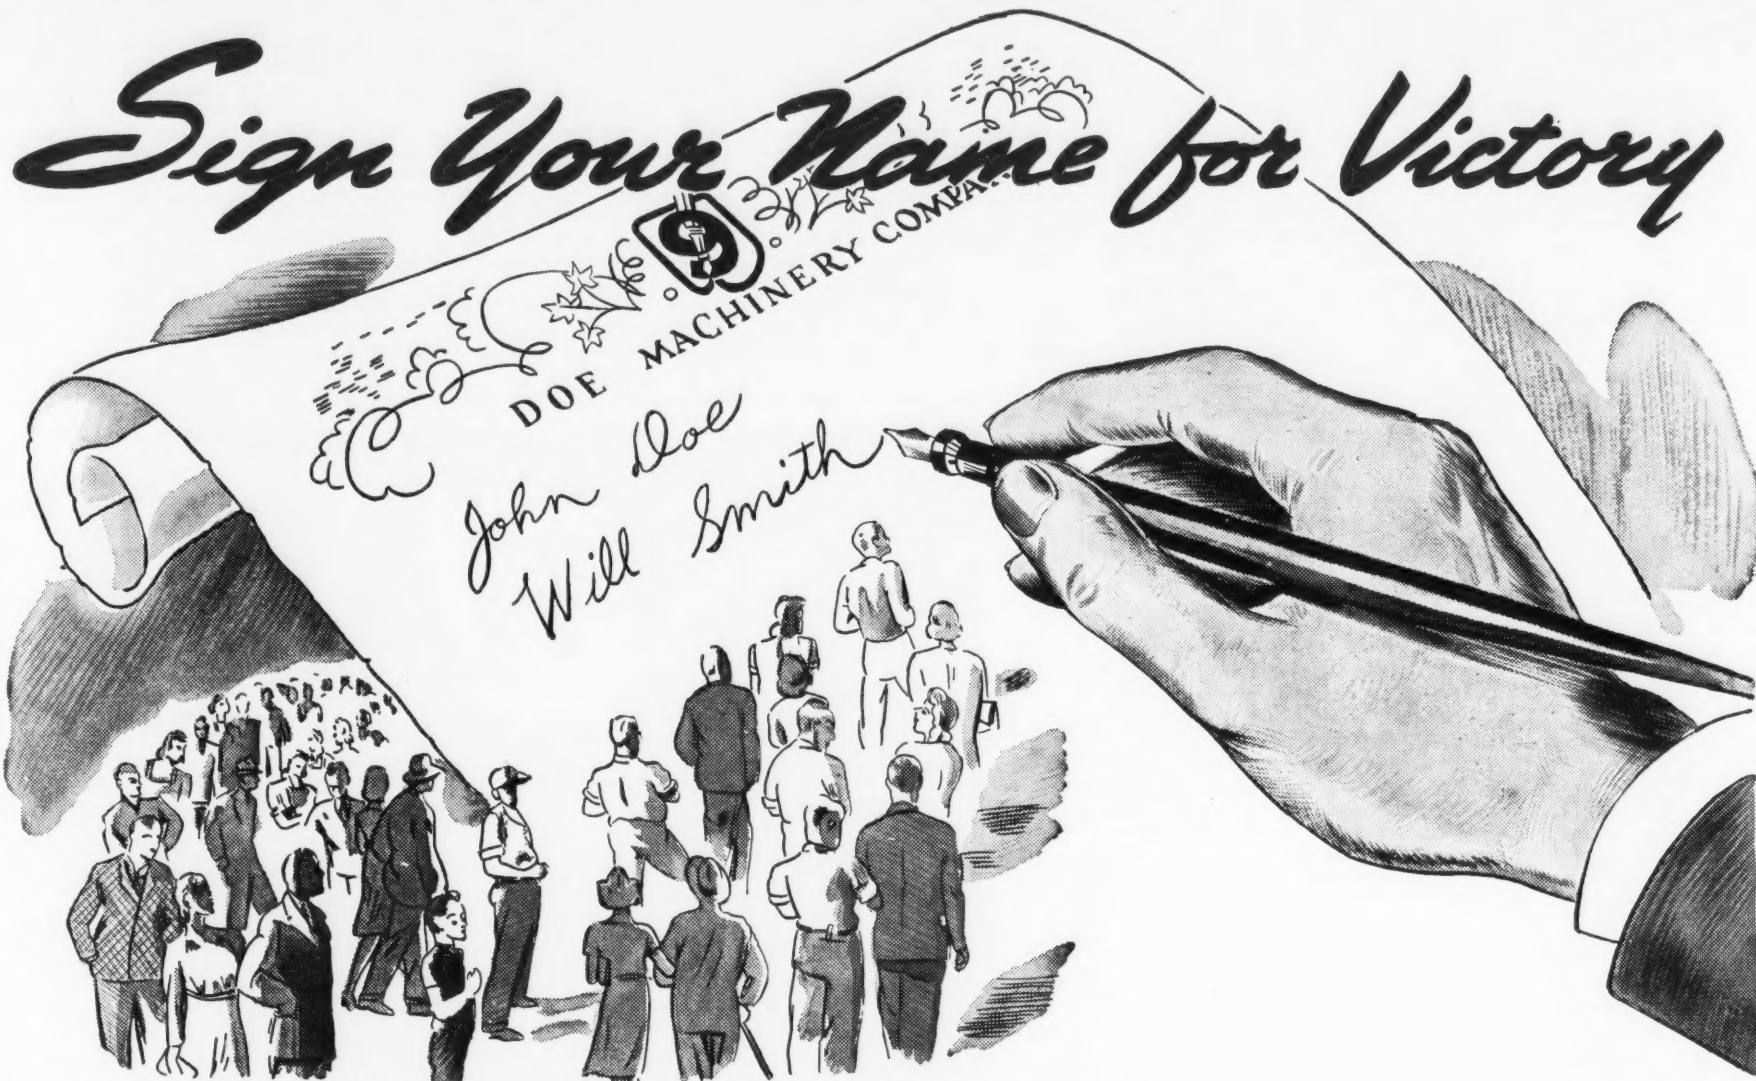 Sign Your Name for Victory
9
DOE MACHINERY COMPANY
John Doe
Will Smith